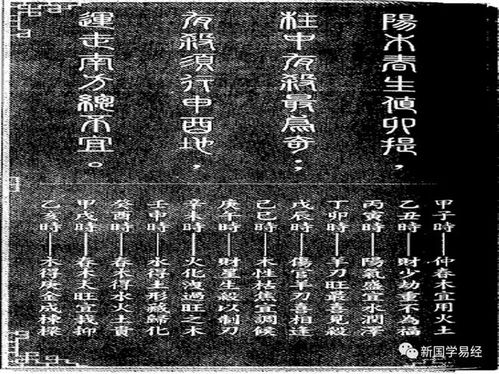 陽木春生值卯提，
柱中有殺最爲奇；
有殺須行申酉地，
運走南方總不宜。
甲子時——仲春木宜用火土
乙丑時——財少劫重不為福
丙寅時——陽氣盛宜水潤澤
丁卯時——羊刃旺最喜見殺
戊辰時——傷官羊刃喜相逢
己巳時——木性枯焦宜調候
庚午時——財星生殺以制刃
辛未時——火化洩過旺之木
壬申時——水得土形藏化
癸酉時——春木得水火土貴
甲戌時——春木太旺宜裁抑
乙亥時——木得庚金成棟樑
新国学易经